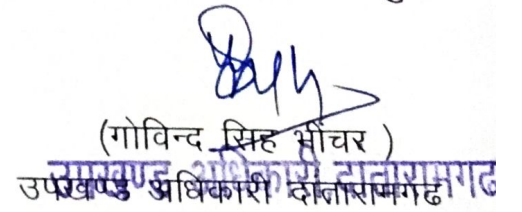 (गोविन्द सिंह भींचर )
उपखण्ड अधिकारी दांतारामगढ
उपखण्ड अधिकारी दांतारामगढ